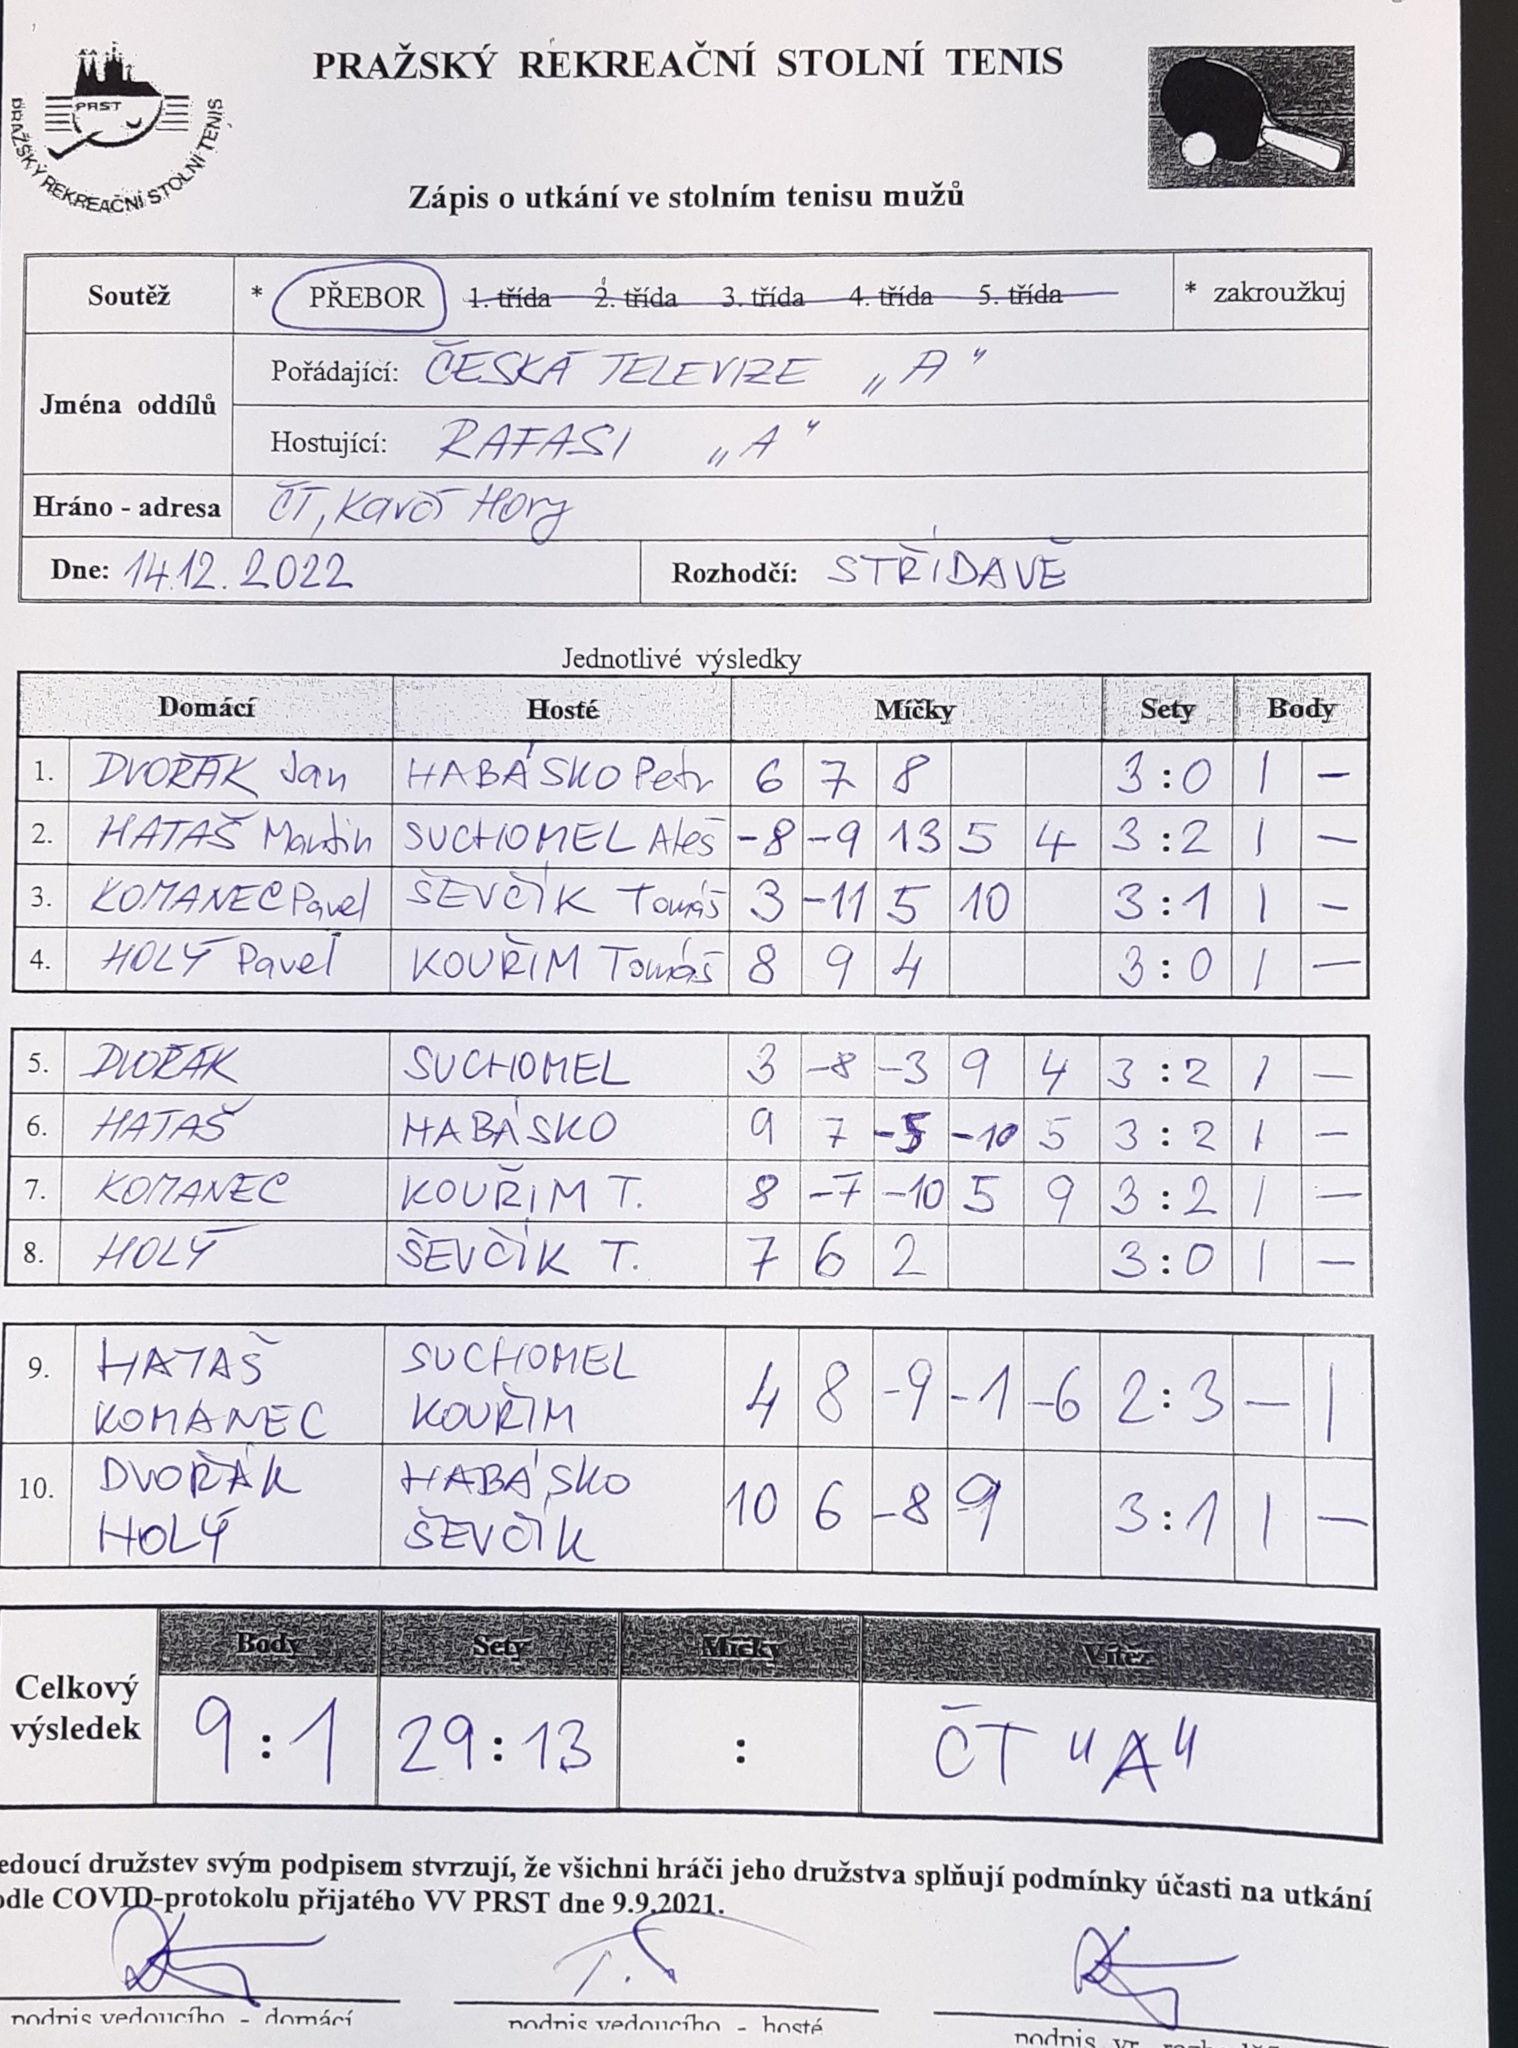 PRAŽSKÝ REKREAČNÍ STOLNÍ TENIS
PRST
PRAŽSKÝ REKREAČNÍ STOLNÍ TENIS
Zápis o utkání ve stolním tenisu mužů
Soutěž * PŘEBOR 1. třída 2. třída 3. třída 4. třída 5. třída * zakroužkuj
Jména oddílů
Pořádající: ČESKÁ TELEVIZE „A"
Hostující: RAFASI „A"
Hráno - adresa ČT, Kavčí Hory
Dne: 14.12.2022 Rozhodčí: STŘÍDAVĚ
Jednotlivé výsledky
Domácí Hosté Míčky Sety Body
1. DVOŘÁK Jan HABÁSKO Petr 6 7 8 3:0 1 –
2. HATAŠ Martin SUCHOMEL Aleš -8 -9 13 5 4 3:2 1 –
3. KOMANEC Pavel ŠEVČÍK Tomáš 3 -11 5 10 3:1 1 –
4. HOLÝ Pavel KOUŘIM Tomáš 8 9 4 3:0 1 –
5. DVOŘÁK SUCHOMEL 3 -8 -3 9 4 3:2 1 –
6. HATAŠ HABÁSKO 9 7 -5 -10 5 3:2 1 –
7. KOMANEC KOUŘIM T. 8 -7 -10 5 9 3:2 1 –
8. HOLÝ ŠEVČÍK T. 7 6 2 3:0 1 –
9. HATAŠ SUCHOMEL 4 8 -9 -1 -6 2:3 – 1
KOMANEC KOUŘIM
10. DVOŘÁK HABÁSKO 10 6 -8 9 3:1 1 –
HOLÝ ŠEVČÍK
Body Sety Míčky Vítěz
Celkový výsledek 9:1 29:13 : ČT "A"
edoucí družstev svým podpisem stvrzují, že všichni hráči jeho družstva splňují podmínky účasti na utkání
odle COVID-protokolu přijatého VV PRST dne 9.9.2021.
podpis vedoucího - domácí podpis vedoucího - hosté podpis vr.